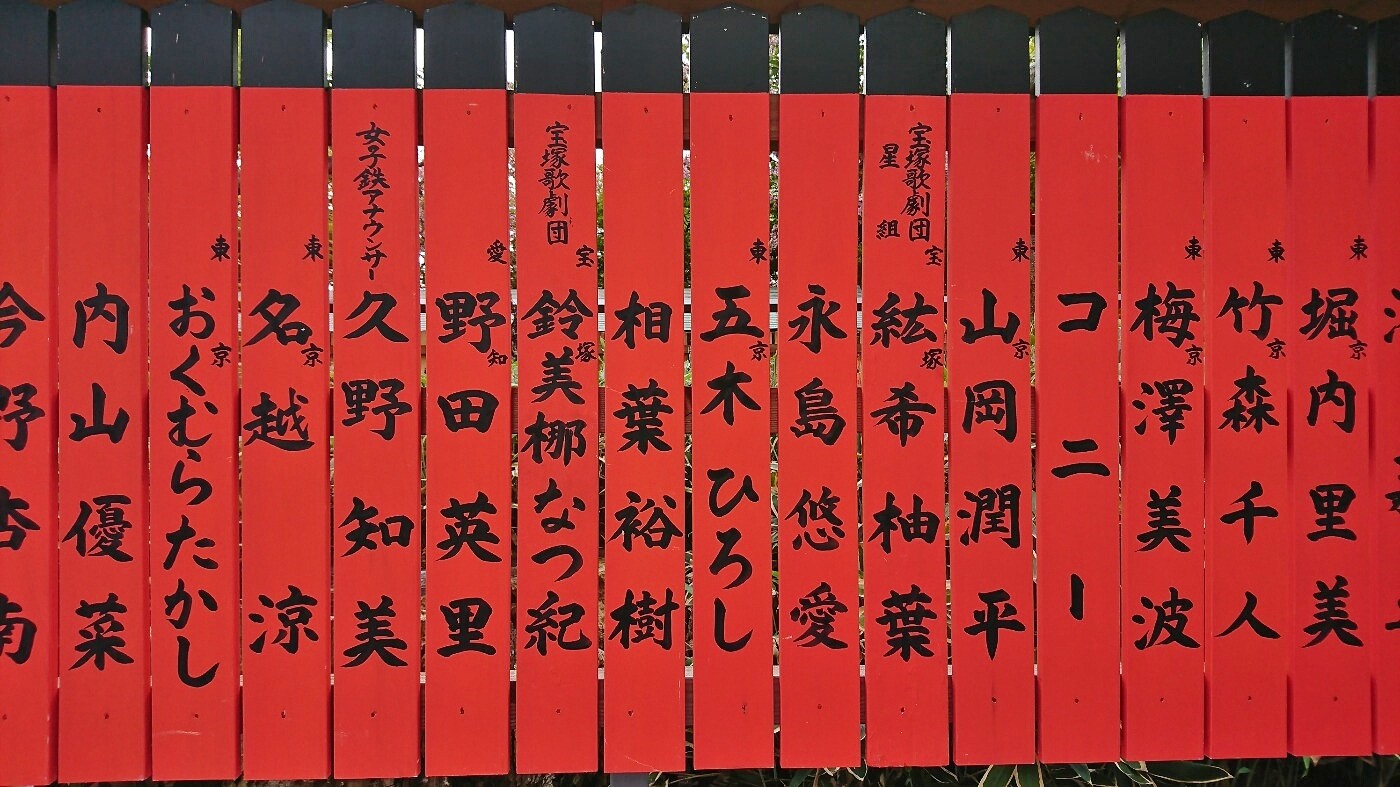 東京
堀内里美
東京
竹森千人
東京
梅澤美波
コニー
東京
山岡潤平
宝塚歌劇団
星組
宝塚
紘希柚葉
永島悠愛
東京
五木ひろし
相葉裕樹
宝塚歌劇団
宝塚
鈴美梛なつ紀
愛知
野田英里
女子鉄アナウンサー
久野知美
東京
名越涼
東京
おくむらたかし
内山優菜
今野杏南